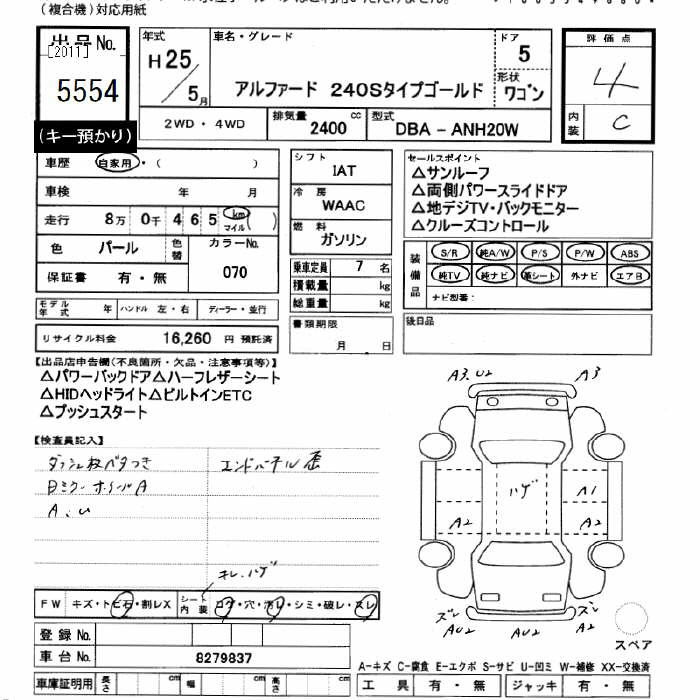 (複合機)対応用紙
出品No.
[2011]
5554
(キー預かり)
年式
H25/5月
車名・グレード
アルファード 240Sタイプゴールド
ドア
5
形状
ワゴン
評価点
4
内装
C
2WD・4WD
排気量
2400 cc
型式
DBA - ANH20W
車歴 自家用・( )
車検 年 月
走行 8万 0千 4 6 5 km マイル ( )
色 パール 色替
カラーNo.
070
保証書 有・無
シフト
IAT
冷房
WAAC
燃料
ガソリン
乗車定員 7 名
積載量 kg
総重量 kg
セールスポイント
△サンルーフ
△両側パワースライドドア
△地デジTV・バックモニター
△クルーズコントロール
装備品
S/R 純A/W P/S P/W ABS
純TV 純ナビ 革シート 外ナビ エアB
ナビ型番:
モデル年式 年 ハンドル 左・右 ディーラー・並行
リサイクル料金 16,260 円 預託済
書類期限
月 日
後日品
【出品店申告欄(不良箇所・欠品・注意事項等)】
△パワーバックドア△ハーフレザーシート
△HIDヘッドライト△ビルトインETC
△プッシュスタート
【検査員記入】
ダッシュ板ベタつき
エンドバーテル歪
Bミラーホイール A
A、U
キレ、ハゲ
A3、U2
A3
ハゲ
A1
A2
A2
ズレ
AU2
AU2
ズレ
A2
スペア
FW キズ・トビ石・割レX
シート内装 コゲ・穴・汚レ・シミ・破レ・スレ
登録No.
車台No. 8279837
車庫証明用 長さ cm 幅 cm 高さ cm
A-キズ C-腐食 E-エクボ S-サビ U-凹ミ W-補修 XX-交換済
工具 有・無 ジャッキ 有・無